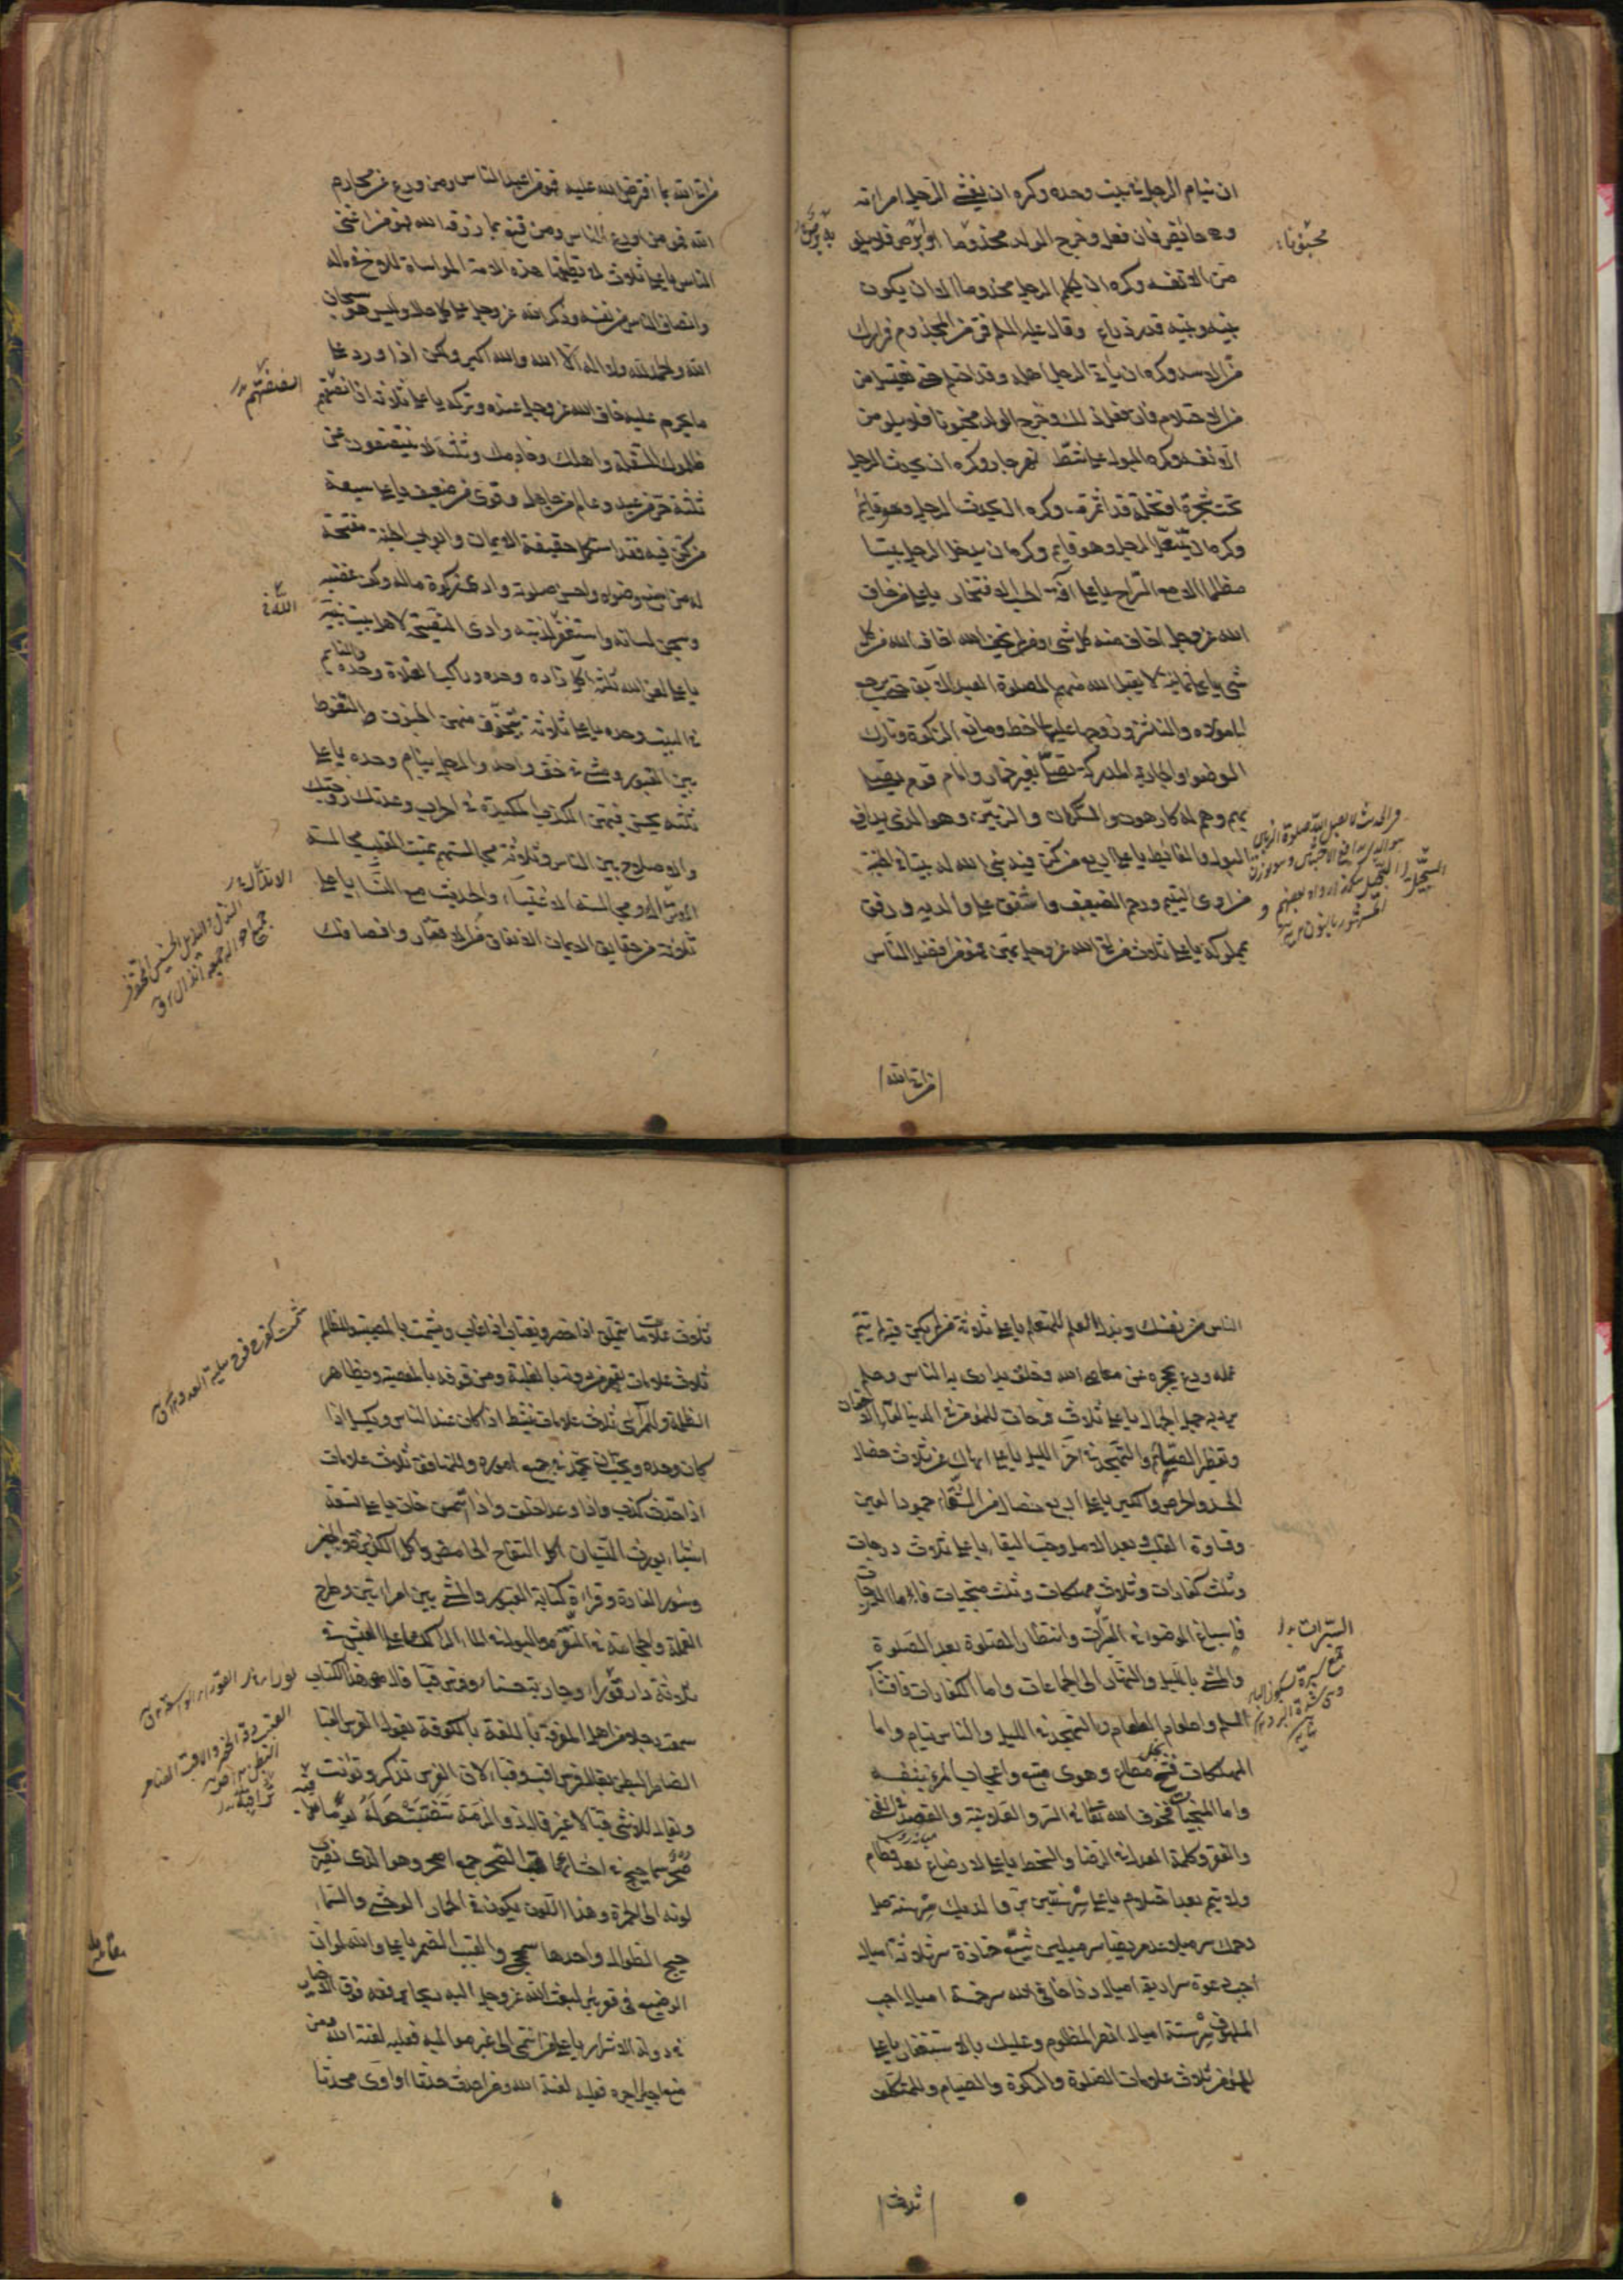 ان ينام الرجل في بيت وحده وكره ان يغشى الرجل امراته
وهى حائض فان فعل وخرج الولد مجذوما او ابرص فلا يلومن
الا نفسه وكره ان يكلم الرجل مجذوما الا ان يكون
بينه وبينه قدر ذراع وقال عليه السلم فر من المجذوم فرارك
من الاسد وكره ان ياتى الرجل اهله وقد احتلم حتى يغتسل من
من الاحتلام فان فعل ذلك وخرج الولد مجنونا فلا يلومن
الا نفسه وكره البول على شط نهر جار وكره ان يحدث الرجل
تحت شجرة او نخلة قد اثمرت وكره ان يحدث الرجل وهو قائم
وكره ان يتنعل الرجل وهو قايم وكره ان يدخل الرجل بيتا
مظلما الا مع السراج يا على آفة الحسب الافتخار يا على من خاف
الله عز وجل اخاف منه كل شى ومن لم يخف الله اخافه الله من كل
شى يا على ثمانية لا يقبل الله منهم الصلوة العبد الآبق حتى يرجع
الى مولاه والناشز وزوجها عليها ساخط ومانع الزكوة وتارك
الوضوء والجارية المدركة تصلى بغير خمار وامام قوم يصلى
بهم وهم له كارهون والسكران والزبين وهو الذى يدافع
البول والغائط يا على اربع من كن فيه بنى الله له بيتا فى الجنة
من اوى اليتيم ورحم الضعيف واشفق على والديه ورفق
بمملوكه يا على ثلاث من لقى الله عز وجل بهن فهو من افضل الناس
من اتى الله
من اتى الله بما افترض الله عليه فهو من اعبد الناس ومن ورع عن محارم
الله فهو من اورع الناس ومن قنع بما رزقه الله فهو من اغنى
الناس يا على ثلاث لا تطيقها هذه الامة المواساة للاخ فى ماله
وانصاف الناس من نفسه وذكر الله عز وجل على كل حال وليس هو سبحان
الله والحمد لله ولا اله الا الله والله اكبر ولكن اذا ورد على
ما يحرم عليه خاف الله عز وجل عنده وتركه يا على ثلاثة ان انصفتهم
ظلموك السفلة واهلك وخادمك وثلثة لا ينتصفون من
ثلثة حر من عبد وعالم من جاهل وقوى من ضعيف يا على سبعة
من كن فيه فقد استكمل حقيقة الايمان وابواب الجنة مفتحة
له من اسبغ وضوءه واحسن صلوته وادى زكوة ماله وكف غضبه
وسجن لسانه واستغفر لذنبه وادى النصيحة لاهل بيت نبيه
يا على لعن الله ثلثة آكل زاده وحده وراكب الفلاة وحده والنائم
فى البيت وحده يا على ثلاثة يتخوف منهن الجنون التغوط
بين القبور والمشى فى خف واحد والرجل ينام وحده يا على
ثلثه يحسن فيهن الكذب المكيدة فى الحرب وعدتك زوجتك
والاصلاح بين الناس وثلاثة مجالستهم تميت القلب مجالسة
الانذال ومجالسة الاغنياء والحديث مع النساء يا على
ثلاثة من حقايق الايمان الانفاق من الاقتار وانصافك
الناس من نفسك وبذل العلم للمتعلم يا على ثلاثة من لم يكن فيه لم يتم
عمله ورع يحجزه عن معاصى الله وخلق يدارى به الناس وحلم
يرد به جهل الجهال يا على ثلاث فرحات للمؤمن فى الدنيا لقاء الاخوان
وتفطير الصيام والتهجد فى آخر الليل يا على انهاك عن ثلاث خصال
الحسد والحرص والكبر يا على اربع خصال من الشقاء جمود العين
وقساوة القلب وبعد الامل وحب البقاء يا على ثلاث درجات
وثلث كفارات وثلاث مهلكات وثلث منجيات فاما الدرجات
فاسباغ الوضوء فى السبرات وانتظار الصلوة بعد الصلوة
والمشى بالليل والنهار الى الجماعات واما الكفارات فافشاء
السلم واطعام الطعام والتهجد فى الليل والناس نيام واما
المهلكات فشح مطاع وهوى متبع واعجاب المرء بنفسه
واما المنجيات فخوف الله تعالى فى السر والعلانية والقصد فى الغنى
والفقر وكلمة العدل فى الرضا والسخط يا على لا رضاع بعد فطام
ولا يتم بعد احتلام يا على سر سنتين بر والديك سر سنة صل
رحمك سر ميلا عد مريضا سر ميلين شيع جنازة سر ثلاثة اميال
اجب دعوة سر اربعة اميال زر اخا فى الله سر خمسة اميال اجب
الملهوف سر ستة اميال انصر المظلوم وعليك بالاستغفار يا على
للمؤمن ثلاث علامات الصلوة والزكوة والصيام وللمتكلف
ثلاث
ثلاث علامات يتملق اذا حضر ويغتاب اذا غاب ويشمت بالمصيبة وللظالم
ثلاث علامات يقهر من دونه بالغلبة ومن فوقه بالمعصية ويظاهر
الظلمة وللمرائى ثلاث علامات ينشط اذا كان عند الناس ويكسل اذا
كان وحده ويحب ان يحمد فى جميع اموره وللمنافق ثلاث علامات
اذا حدث كذب واذا وعد اخلف واذا ائتمن خان يا على تسعة
اشياء يورث النسيان اكل التفاح الحامض واكل الكزبرة والجبن
وسؤر الفارة وقراءة كتابة القبور والمشى بين امراتين وطرح
القملة والحجامة فى النقرة والبول فى الماء الراكد يا على العيش فى
ثلاثة دار قوراء وجارية حسناء وفرس قباء قال مصنف هذا الكتاب
سمعت رجلا من اهل المعرفة باللغة بالكوفة يقول الفرس القباء
الضامر البطن يقال فرس اقب وقباء لان الفرس تذكر وتؤنث
ويقال للانثى قباء لا غير قال ذو الرمة تنصبت حوله يوما تراقبه
صحر سماحيج فى احشائها قبب الصحر جمع اصحر وهو الذى يضرب
لونه الى الحمرة وهذا اللون يكون فى الحمار الوحشى والسماحيج
الطوال واحدها سمحج والقبب الضمر يا على والله لو ان
الوضيع فى قعر بئر لبعث الله عز وجل اليه ريحا يرفعه فوق الاخيار
فى دولة الاشرار يا على من انتمى الى غير مواليه فعليه لعنة الله ومن
منع اجيرا اجره فعليه لعنة الله ومن احدث حدثا او آوى محدثا